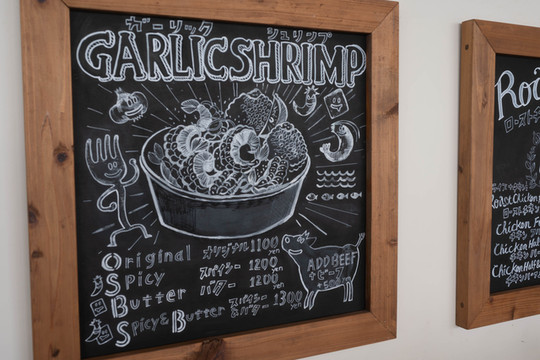 ガーリック シュリンプ
GARLIC SHRIMP
Original オリジナル 1100 yen
Spicy スパイシー 1200 yen
Butter バター 1200 yen
Spicy & Butter スパイシー &バター 1300 yen
ADD BEEF
+ビーフ
Roa
ロースト
Roast Chicken
ローストチキン
Chicken
Chicken Half
Chicken Half